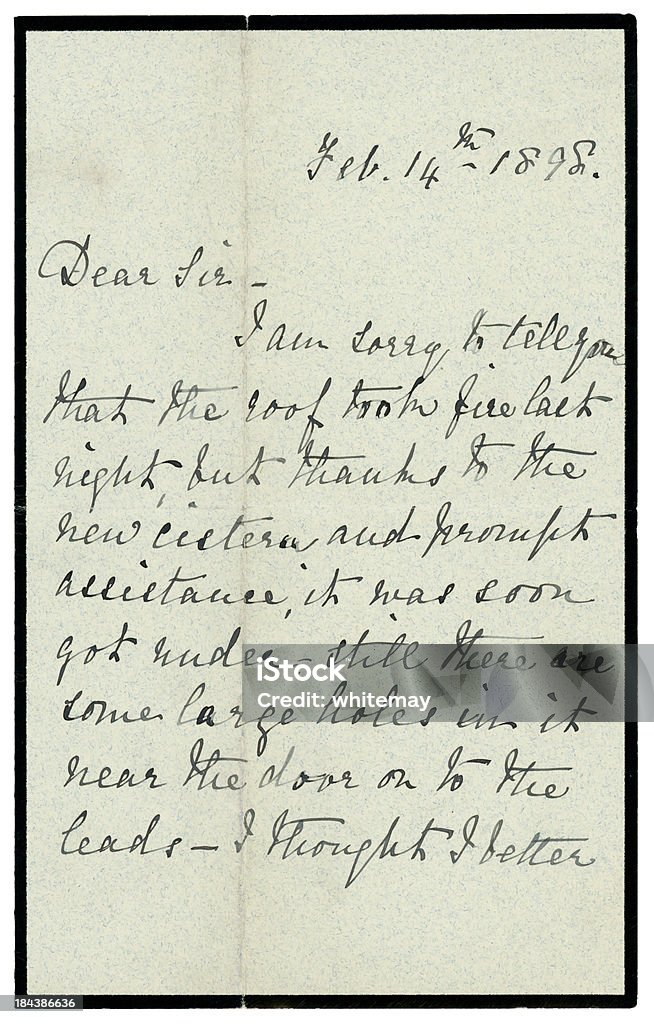 Feb. 14th 1898.
Dear Sir -
I am sorry to tell you
that the roof took fire last
night, but thanks to the
new cistern, and prompt
assistance, it was soon
got under - still there are
some large holes in it
near the door on to the
leads - I thought I better
iStock
Credit: whitemay
184386636